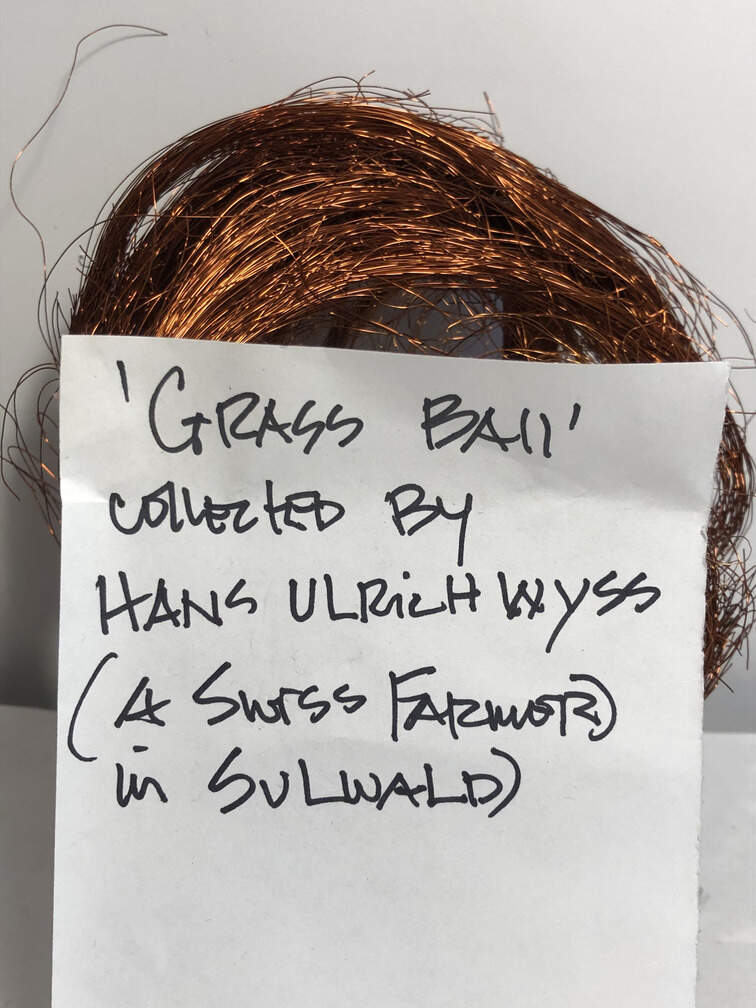 'GRASS BAll'
collected By
HANS ULRicH WYSS
(A Swiss FARMER)
in SULWALD)